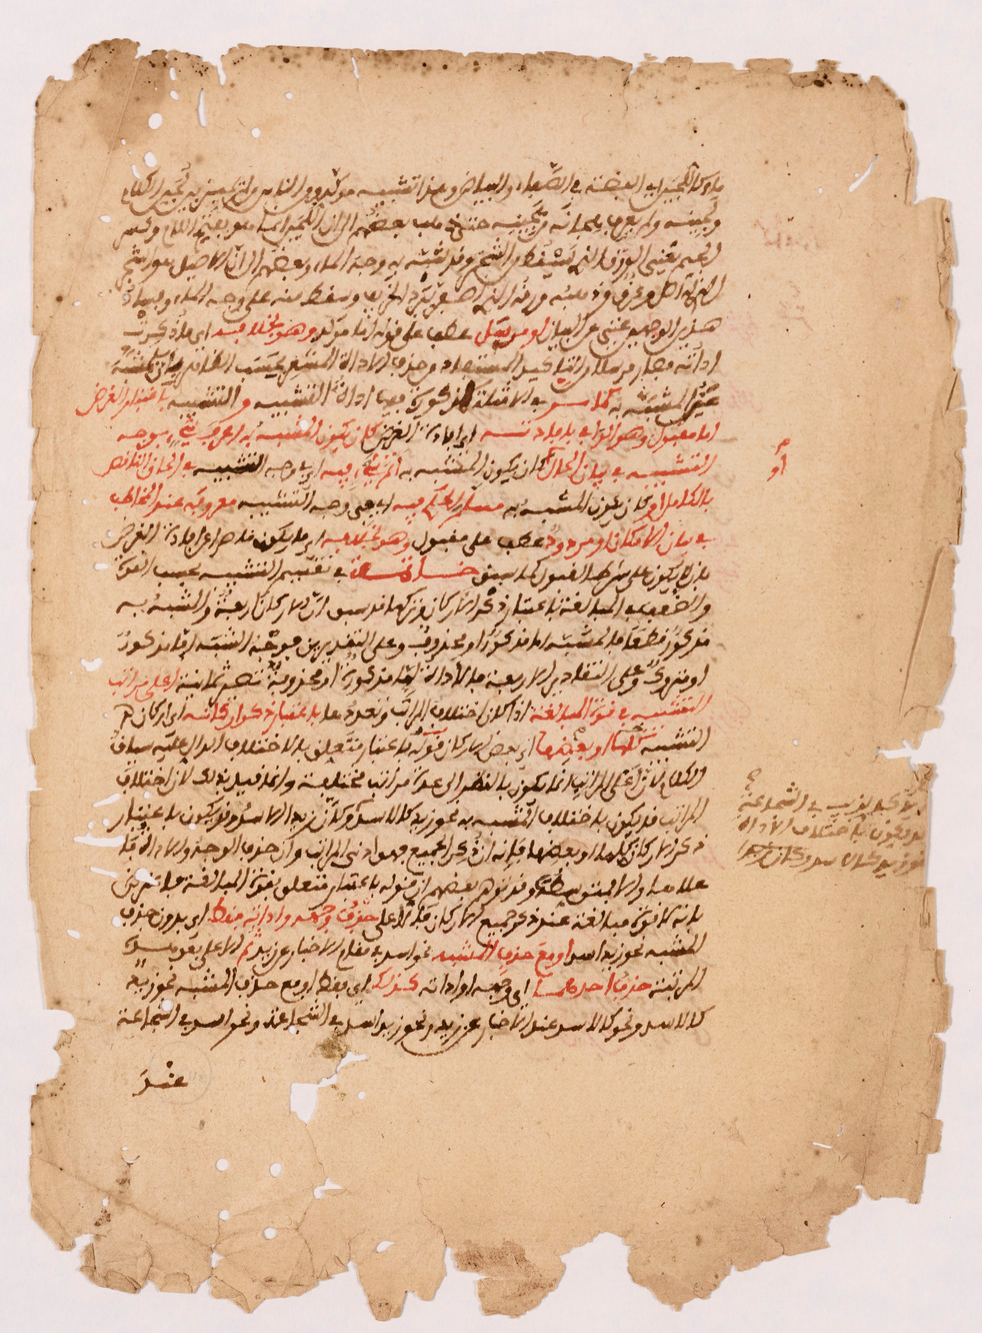 ماء كاللجين اي الفضة في الصفاء والبياض وهذا تشبيه مؤكد ومن الناس من لم يميز بين لجين الكلام
ولجينه ولم يعرف هجانه من هجينه حتى ذهب بعضهم الى ان اللجين انما هو بفتح اللام وكسر
الجيم يعني الورق الذي يسقط من الشجر وقد شبه به وجه الماء وبعضهم الى ان الاصيل هو الشجر
الذي له اصل وعرق وذهبه ورقه الذي اصفر ببرد الخريف وسقط منه على وجه الماء وفساد
هذين الوجهين غني عن البيان او مرسل عطف على قوله اما مؤكد وهو بخلافه اي ما ذكرت
اداته فصار مرسلا من التاكيد المستفاد من حذف الاداة المشعر بحسب الظاهر بان المشبه
عين المشبه به كما مر من الامثلة المذكورة فيها اداة التشبيه والتشبيه باعتبار الغرض
اما مقبول وهو الوافي بافادته اي افادة الغرض كان يكون المشبه به اعرف شيء بوجه
التشبيه في بيان الحال او كان يكون المشبه به اتم شيء فيه اي في وجه التشبيه في الحاق الناقص
بالكامل او كان يكون المشبه به مسلم الحكم فيه اي في وجه التشبيه معروفه عند المخاطب
في بيان الامكان او مردود عطف على مقبول وهو بخلافه اي ما يكون قاصرا عن افادة الغرض
بان لا يكون على شرط القبول كما سبق خاتمة في تقسيم التشبيه بحسب القوة
والضعف في المبالغة باعتبار ذكر الاركان وتركها قد سبق ان الاركان اربعة والمشبه به
مذكور قطعا فالمشبه اما مذكور او محذوف وعلى التقديرين فوجه الشبه اما مذكور
او متروك وعلى التقادير الاربعة فالاداة اما مذكورة او محذوفة تصير ثمانية اعلى مراتب
التشبيه في قوة المبالغة اذا كان اختلاف المراتب وتعددها باعتبار ذكر اركانه اي اركان
التشبيه كلها او بعضها اي بعض الاركان فقوله باعتبار متعلق بالاختلاف الدال عليه سياق
الكلام لان اعلى المراتب انما يكون بالنظر الى عدة مراتب مختلفة وانما قيد بذلك لان اختلاف
المراتب قد يكون باختلاف المشبه به نحو زيد كالاسد وكان زيدا الاسد وقد يكون باعتبار
ذكر الاركان كلها او بعضها فانه ان ذكر الجميع فهو ادنى المراتب وان حذف الوجه والاداة فا
علاها والا فمتوسطة وقد توهم بعضهم ان قوله باعتبار متعلق بقوة المبالغة فاعترض
بانه لا قوة مبالغة عند ذكر جميع الاركان فالاعلى حذف وجهه واداته فقط اي بدون حذف
المشبه نحو زيد اسد او مع حذف المشبه نحو اسد في مقام الاخبار عن زيد ثم الاعلى بعد هذه
المرتبة حذف احدهما اي وجهه او اداته كذلك اي فقط او مع حذف المشبه نحو زيد
كالاسد ونحو كالاسد عند الاخبار عن زيد ونحو زيد اسد في الشجاعة ونحو اسد في الشجاعة
عند